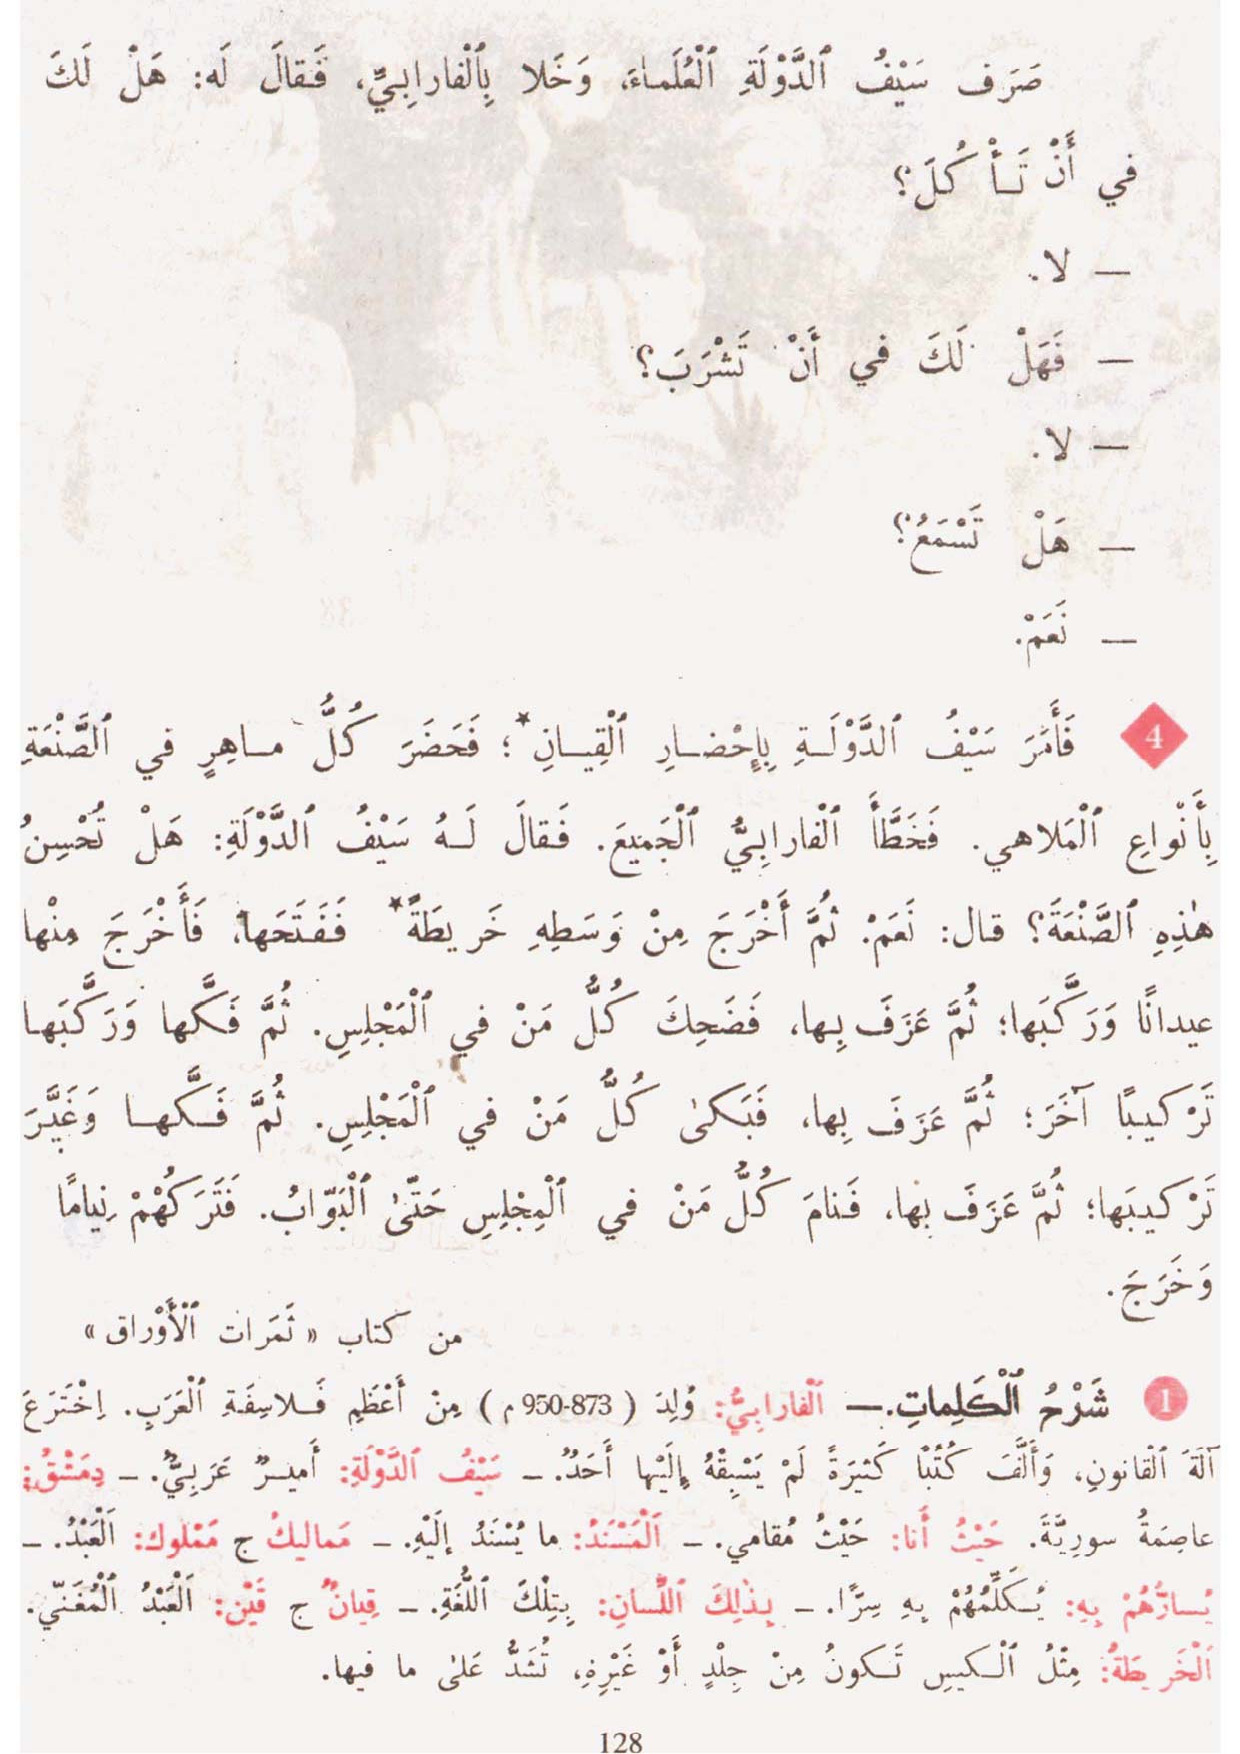 صَرَف سَيْفُ ٱلدَّوْلَةِ ٱلْعُلَماءَ، وَخَلا بِٱلْفارابِيِّ، فَقالَ لَه: هَلْ لَكَ
في أَنْ تَأْكُلَ؟
— لا.
— فَهَلْ لَكَ في أَنْ تَشْرَبَ؟
— لا.
— هَلْ تَسْمَعُ؟
— نَعَمْ.
4 فَأَمَرَ سَيْفُ ٱلدَّوْلَةِ بِإِحْضارِ ٱلْقِيانِ* ؛ فَحَضَرَ كُلُّ ماهِرٍ في ٱلصَّنْعَةِ
بِأَنْواعِ ٱلْمَلاهي. فَخَطَّأَ ٱلْفارابِيُّ ٱلْجَميعَ. فَقالَ لَهُ سَيْفُ ٱلدَّوْلَةِ: هَلْ تُحْسِنُ
هٰذِهِ ٱلصَّنْعَةَ؟ قال: نَعَمْ. ثُمَّ أَخْرَجَ مِنْ وَسَطِهِ خَريطَةً* فَفَتَحَها، فَأَخْرَجَ مِنْها
عيدانًا وَرَكَّبَها؛ ثُمَّ عَزَفَ بِها، فَضَحِكَ كُلُّ مَنْ في ٱلْمَجْلِسِ. ثُمَّ فَكَّها وَرَكَّبَها
تَرْكيبًا آخَرَ؛ ثُمَّ عَزَفَ بِها، فَبَكىٰ كُلُّ مَنْ في ٱلْمَجْلِسِ. ثُمَّ فَكَّها وَغَيَّرَ
تَرْكيبَها؛ ثُمَّ عَزَفَ بِها، فَنامَ كُلُّ مَنْ في ٱلْمِجْلِسِ حَتّىٰ ٱلْبَوّابُ. فَتَرَكَهُمْ نِيامًا
وَخَرَجَ.
من كتاب « ثَمَرات ٱلْأَوْراق »
1 شَرْحُ ٱلْكَلِماتِ.— ٱلْفارابِيُّ: وُلِدَ ( 873-950 م ) مِنْ أَعْظَمِ فَلاسِفَةِ ٱلْعَرَبِ. اِخْتَرَعَ
آلَةَ ٱلْقانونِ، وَأَلَّفَ كُتُبًا كَثيرَةً لَمْ يَسْبِقْهُ إِلَيْها أَحَدٌ. – سَيْفُ ٱلدَّوْلَةِ: أَميرٌ عَرَبِيٌّ. – دِمَشْقُ:
عاصِمَةُ سورِيَّةَ. حَيْثُ أَنا: حَيْثُ مُقامي. – ٱلْمَسْنَدُ: ما يُسْنَدُ إِلَيْهِ. – مَماليكُ ج مَمْلوك: اَلْعَبْدُ. –
يُسارُّهُمْ بِهِ: يُكَلِّمُهُمْ بِهِ سِرًّا. – بِذٰلِكَ ٱللِّسانِ: بِتِلْكَ ٱللُّغَةِ. – قِيانٌ ج قَيْن: اَلْعَبْدُ ٱلْمُغَنّي.
اَلْخَريطَةُ: مِثْلُ ٱلْكيسِ تَكونُ مِنْ جِلْدٍ أَوْ غَيْرِهِ، تُشَدُّ عَلىٰ ما فيها.
128